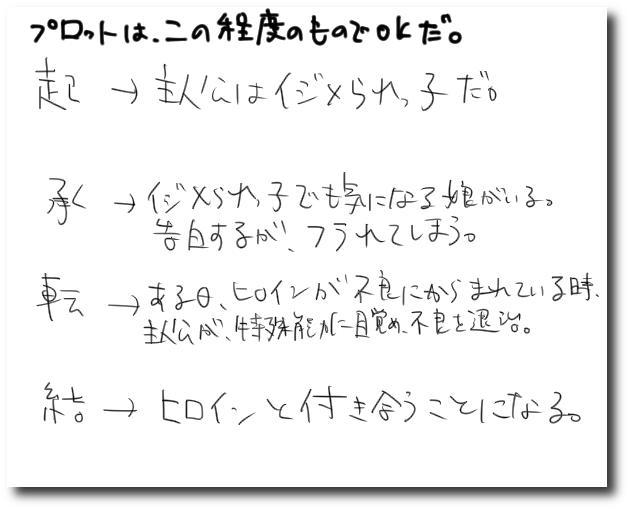 プロットは、この程度のものでOKだ。
起 → 主人公はイジメられっ子だ。
承 → イジメられっ子でも気になる娘がいる。
告白するが、フラれてしまう。
転 → ある日、ヒロインが不良にからまれている時、
主人公が、特殊能力に目覚め、不良を退治。
結 → ヒロインと付き合うことになる。